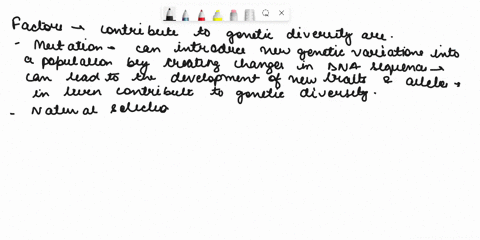 Factors → contribute to genetic diversity are.
- Mutation → can introduce new genetic variations into
a population by creating changes in DNA sequence →
can lead to the development of new traits & alleles →
in turn contribute to genetic diversity.
- Natural selectio